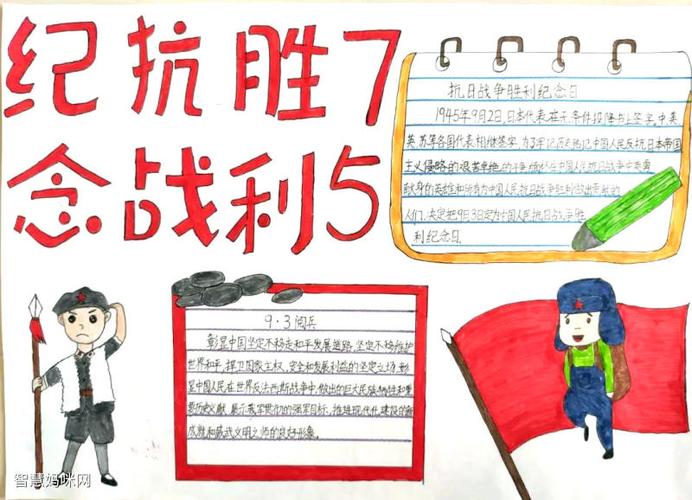 纪抗胜7
念战利5
抗日战争胜利纪念日
1945年9月2日,日本代表在无条件投降书上签字,中美
英苏等各国代表相继签字,为了牢记历史,铭记中国人民反抗日本帝国
主义侵略的艰苦卓绝的斗争,缅怀在中国人民抗日战争中英勇
献身的英雄和所有为中国人民抗日战争胜利做出贡献的
人们,决定把9月3日定为中国人民抗日战争胜
利纪念日.
9·3阅兵
彰显中国坚定不移走和平发展道路,坚定不移维护
世界和平,捍卫国家主权,安全和发展利益的坚定立场,彰
显中国人民在世界反法西斯战争中,做出的巨大民族牺牲和重
要历史贡献,展示我军贯彻的强军目标,推进现代化建设的新
成就和威武文明之师的良好形象。
智慧妈咪网